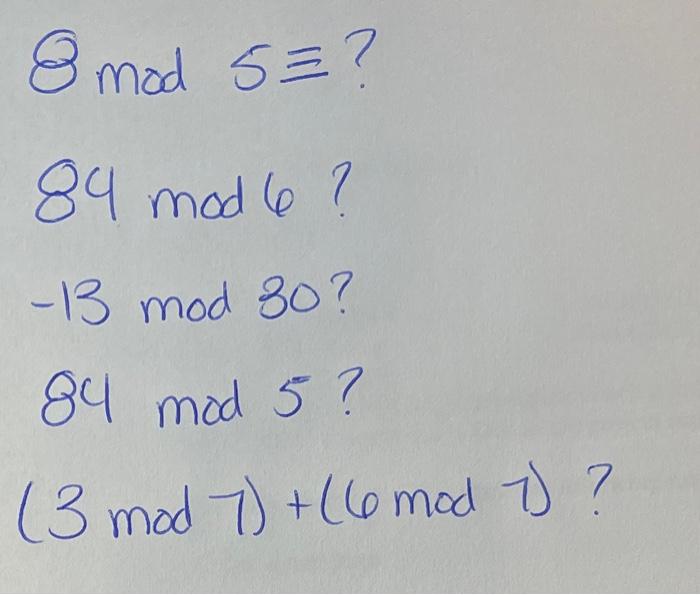 8 mod 5≡?
84 mod 6 ?
-13 mod 30?
84 mod 5 ?
(3 mod 7) + (6 mod 7) ?